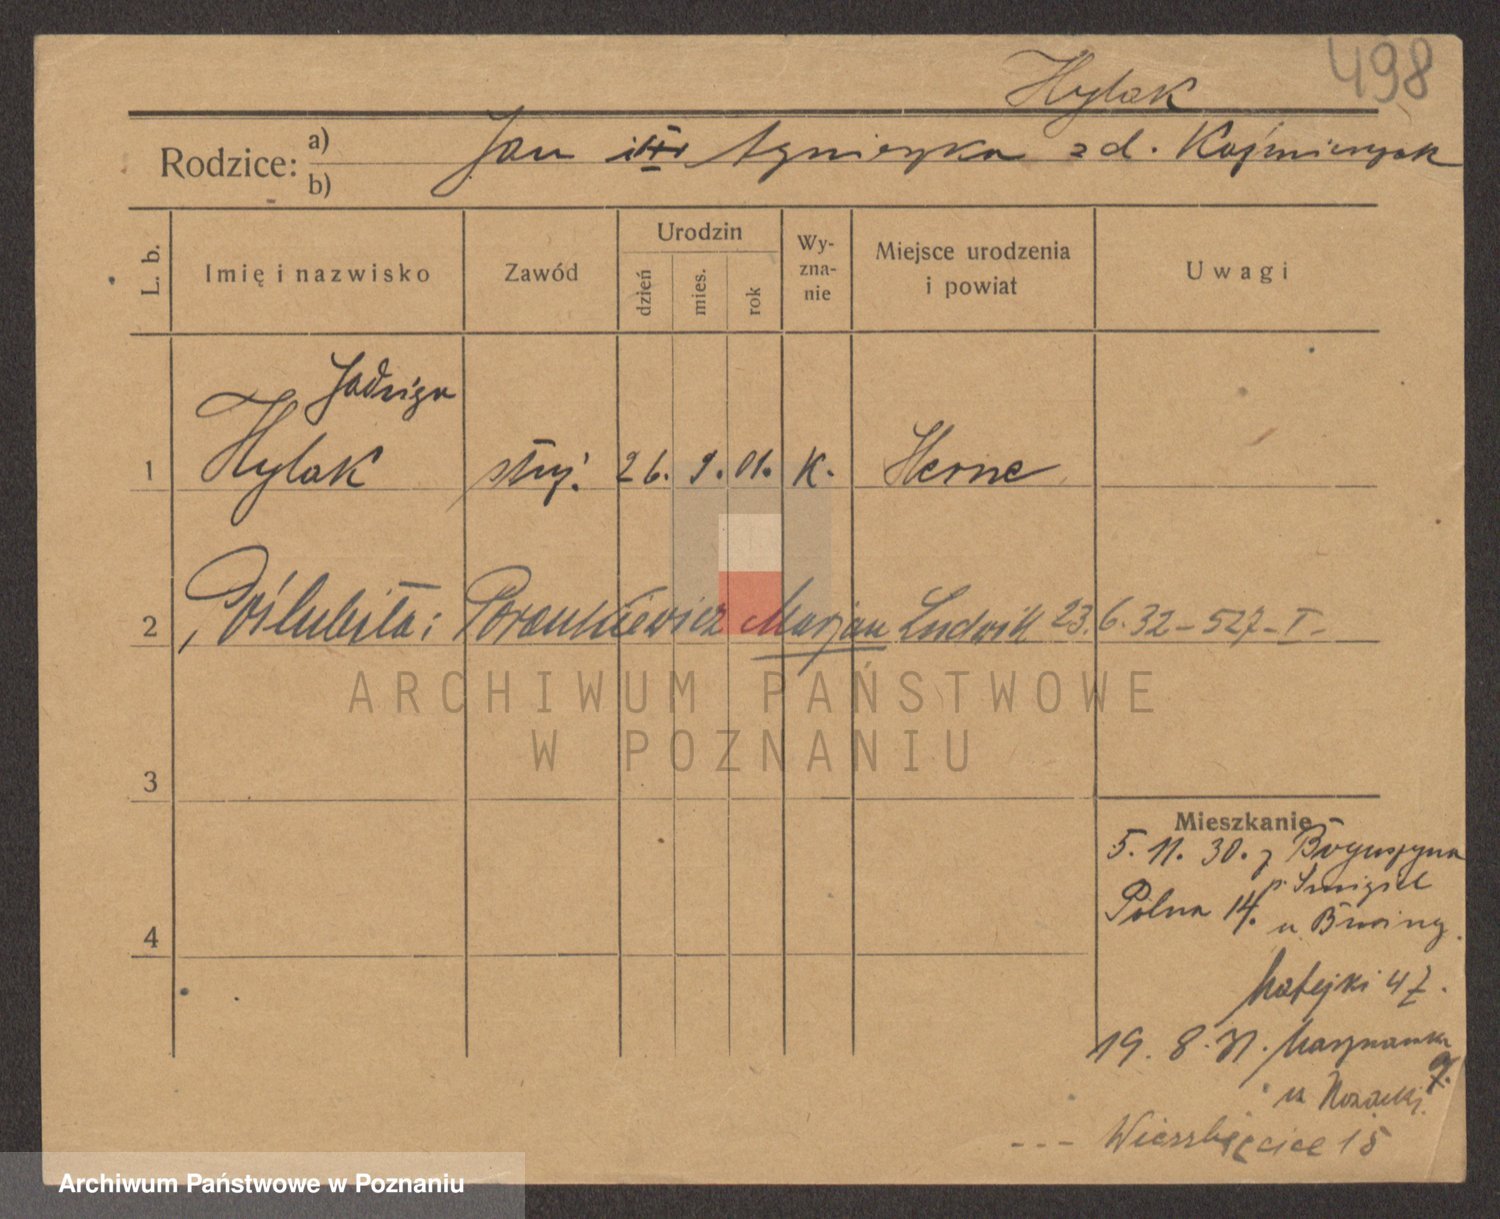 498
Hylak
Rodzice: a) b) Jan i Agnieszka z d. Kaźmierczak
L. b.
Imię i nazwisko
Zawód
Urodzin
dzień
mies.
rok
Wy-
zna-
nie
Miejsce urodzenia
i powiat
Uwagi
Jadwiga
1 Hylak służ. 26. 9. 01. K. Herne
2 Poślubiła: Porankiewicz Marjan Ludwik 23.6.32-527-I-
ARCHIWUM PAŃSTWOWE
W POZNANIU
3
Mieszkanie
5. 11. 30. z Boguszyna
p. Śmigiel
Polna 14. u
4
Matejki 47.
19. 8. 31.
9.
u
--- Wierzbięcice 15
Archiwum Państwowe w Poznaniu